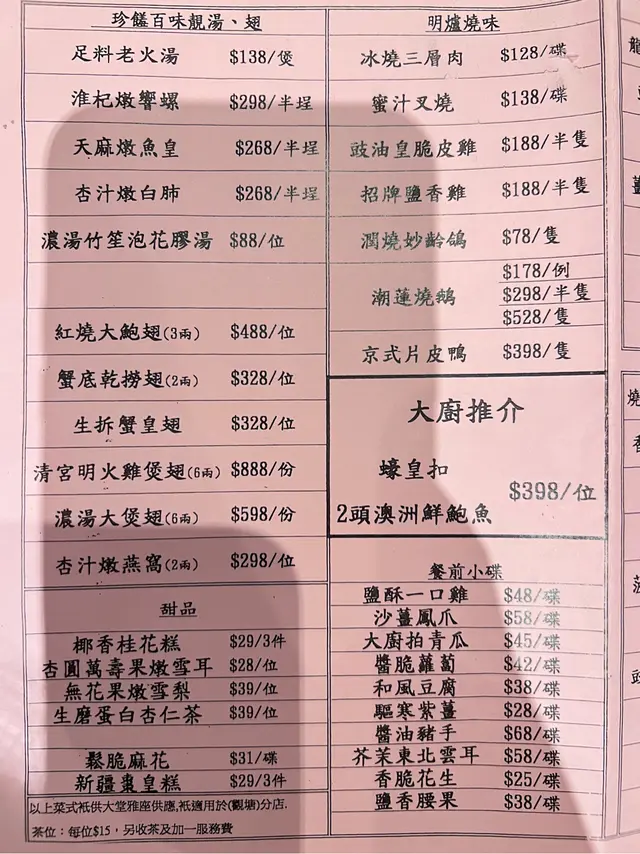 珍饈百味靚湯、翅
足料老火湯 $138/煲
淮杞燉響螺 $298/半埕
天麻燉魚皇 $268/半埕
杏汁燉白肺 $268/半埕
濃湯竹笙泡花膠湯 $88/位
紅燒大鮑翅(3兩) $488/位
蟹底乾撈翅(2兩) $328/位
生拆蟹皇翅 $328/位
清宮明火雞煲翅(6兩) $888/份
濃湯大煲翅(6兩) $598/份
杏汁燉燕窩(2兩) $298/位
甜品
椰香桂花糕 $29/3件
杏圓萬壽果燉雪耳 $28/位
無花果燉雪梨 $39/位
生磨蛋白杏仁茶 $39/位
鬆脆麻花 $31/碟
新疆棗皇糕 $29/3件
以上菜式衹供大堂雅座供應,衹適用於(觀塘)分店.
茶位：每位$15，另收茶及加一服務費
明爐燒味
冰燒三層肉 $128/碟
蜜汁叉燒 $138/碟
豉油皇脆皮雞 $188/半隻
招牌鹽香雞 $188/半隻
潤燒妙齡鴿 $78/隻
潮蓮燒鵝 $178/例
$298/半隻
$528/隻
京式片皮鴨 $398/隻
大廚推介
蠔皇扣
2頭澳洲鮮鮑魚 $398/位
餐前小碟
鹽酥一口雞 $48/碟
沙薑鳳爪 $58/碟
大廚拍青瓜 $45/碟
醬脆蘿蔔 $42/碟
和風豆腐 $38/碟
驅寒紫薑 $28/碟
醬油豬手 $68/碟
芥茉東北雲耳 $58/碟
香脆花生 $25/碟
鹽香腰果 $38/碟